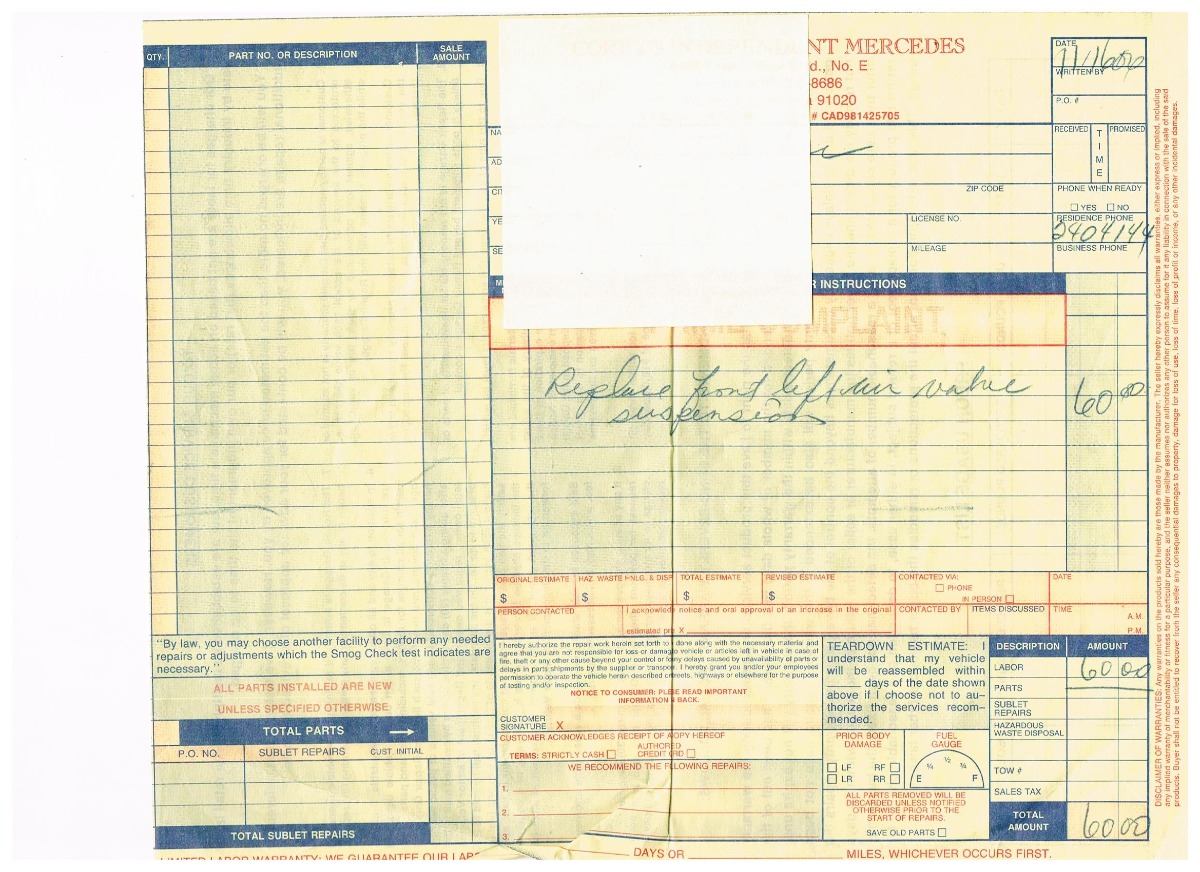 QTY. PART NO. OR DESCRIPTION SALE AMOUNT
NT MERCEDES
d., No. E
8686
91020
# CAD981425705
DATE
WRITTEN BY
P.O. #
RECEIVED TIME PROMISED
NA
AD
ZIP CODE
PHONE WHEN READY
YES NO
YE
LICENSE NO.
RESIDENCE PHONE
2404144
SE
MILEAGE
BUSINESS PHONE
INSTRUCTIONS
COMPLAINT
Replace front left air valve
suspension
60 00
ORIGINAL ESTIMATE HAZ. WASTE HNLG. & DISP TOTAL ESTIMATE REVISED ESTIMATE CONTACTED VIA: DATE
PHONE
$ $ $ $ IN PERSON
PERSON CONTACTED I acknowledge notice and oral approval of an increase in the original CONTACTED BY ITEMS DISCUSSED TIME
A.M.
estimated X P.M.
"By law, you may choose another facility to perform any needed
repairs or adjustments which the Smog Check test indicates are
necessary."
ALL PARTS INSTALLED ARE NEW
UNLESS SPECIFIED OTHERWISE
TOTAL PARTS →
P.O. NO. SUBLET REPAIRS CUST. INITIAL
TOTAL SUBLET REPAIRS
I hereby authorize the repair work herein set forth to done along with the necessary material and
agree that you are not responsible for loss or damage vehicle or articles left in vehicle in case of
fire, theft or any other cause beyond your control or for any delays caused by unavailability of parts or
delays in parts shipments by the supplier or transporter. I hereby grant you and/or your employees
permission to operate the vehicle herein described on streets, highways or elsewhere for the purpose
of testing and/or inspection.
NOTICE TO CONSUMER: PLEASE READ IMPORTANT
INFORMATION BACK.
CUSTOMER
SIGNATURE X
CUSTOMER ACKNOWLEDGES RECEIPT OF COPY HEREOF
TERMS: STRICTLY CASH
WE RECOMMEND THE FOLLOWING REPAIRS:
1.
2.
3.
TEARDOWN ESTIMATE: I
understand that my vehicle
will be reassembled within
____ days of the date shown
above if I choose not to au-
thorize the services recom-
mended.
PRIOR BODY DAMAGE
LF RF
LR RR
FUEL GAUGE
E ¼ ½ ¾ F
ALL PARTS REMOVED WILL BE
DISCARDED UNLESS NOTIFIED
OTHERWISE PRIOR TO THE
START OF REPAIRS.
SAVE OLD PARTS
DESCRIPTION AMOUNT
LABOR 60 00
PARTS
SUBLET REPAIRS
HAZARDOUS WASTE DISPOSAL
TOW #
SALES TAX
TOTAL AMOUNT 60 00
LIMITED LABOR WARRANTY: WE GUARANTEE OUR DAYS OR MILES, WHICHEVER OCCURS FIRST.
DISCLAIMER OF WARRANTIES: Any warranties on the products sold hereby are those made by the manufacturer. The seller hereby expressly disclaims all warranties, either express or implied, including
any implied warranty of merchantability or fitness for a particular purpose, and the seller neither assumes nor authorizes any other person to assume for it any liability in connection with the sale of the said
products. Buyer shall not be entitled to recover from the seller any consequential damages to property, damage for loss of use, loss of time, loss of profit or income, or any other incidental damages.